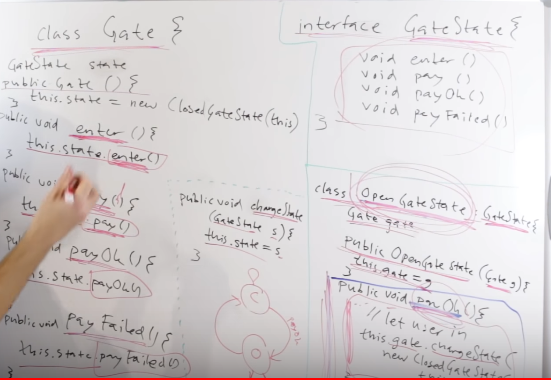 class Gate {
GateState state
public Gate () {
this.state = new ClosedGateState(this)
}
public void enter () {
this.state.enter()
}
public
pay() {
.pay()
}
void payOk () {
.state.payOk()
public void Pay Failed () {
this.state.payFailed()
}
public void changeState
(GateState s) {
this.state = s
}
C
O
interface GateState {
void enter ()
void pay ()
void payOk ()
void payFailed ()
}
class OpenGateState : GateState {
Gate gate
public OpenGateState (Gate g) {
this.gate = g
}
public void payOk () {
// let user in
this.gate.changeState (
new ClosedGateState